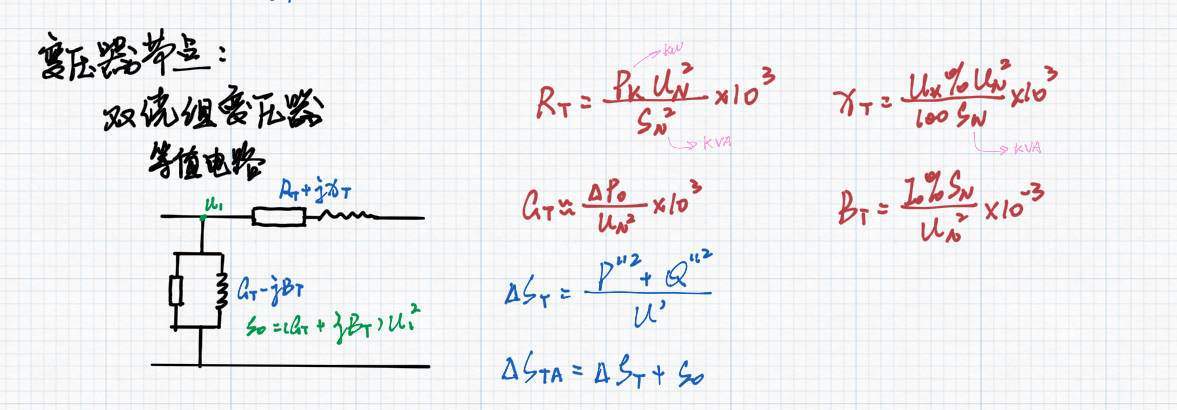 变压器节点：
双绕组变压器
等值电路
R_T + jx_T
u₁
G_T - jB_T
S₀ = (G_T + jB_T) U₁²
R_T = P_K U_N² / S_N² ×10³
kW
KVA
x_T = U_K% U_N² / 100 S_N ×10³
KVA
G_T ≈ ΔP₀ / U_N² ×10³
B_T = I₀% S_N / U_N² ×10⁻³
ΔS_T = P''² + Q''² / U'
ΔS_TA = ΔS_T + S₀